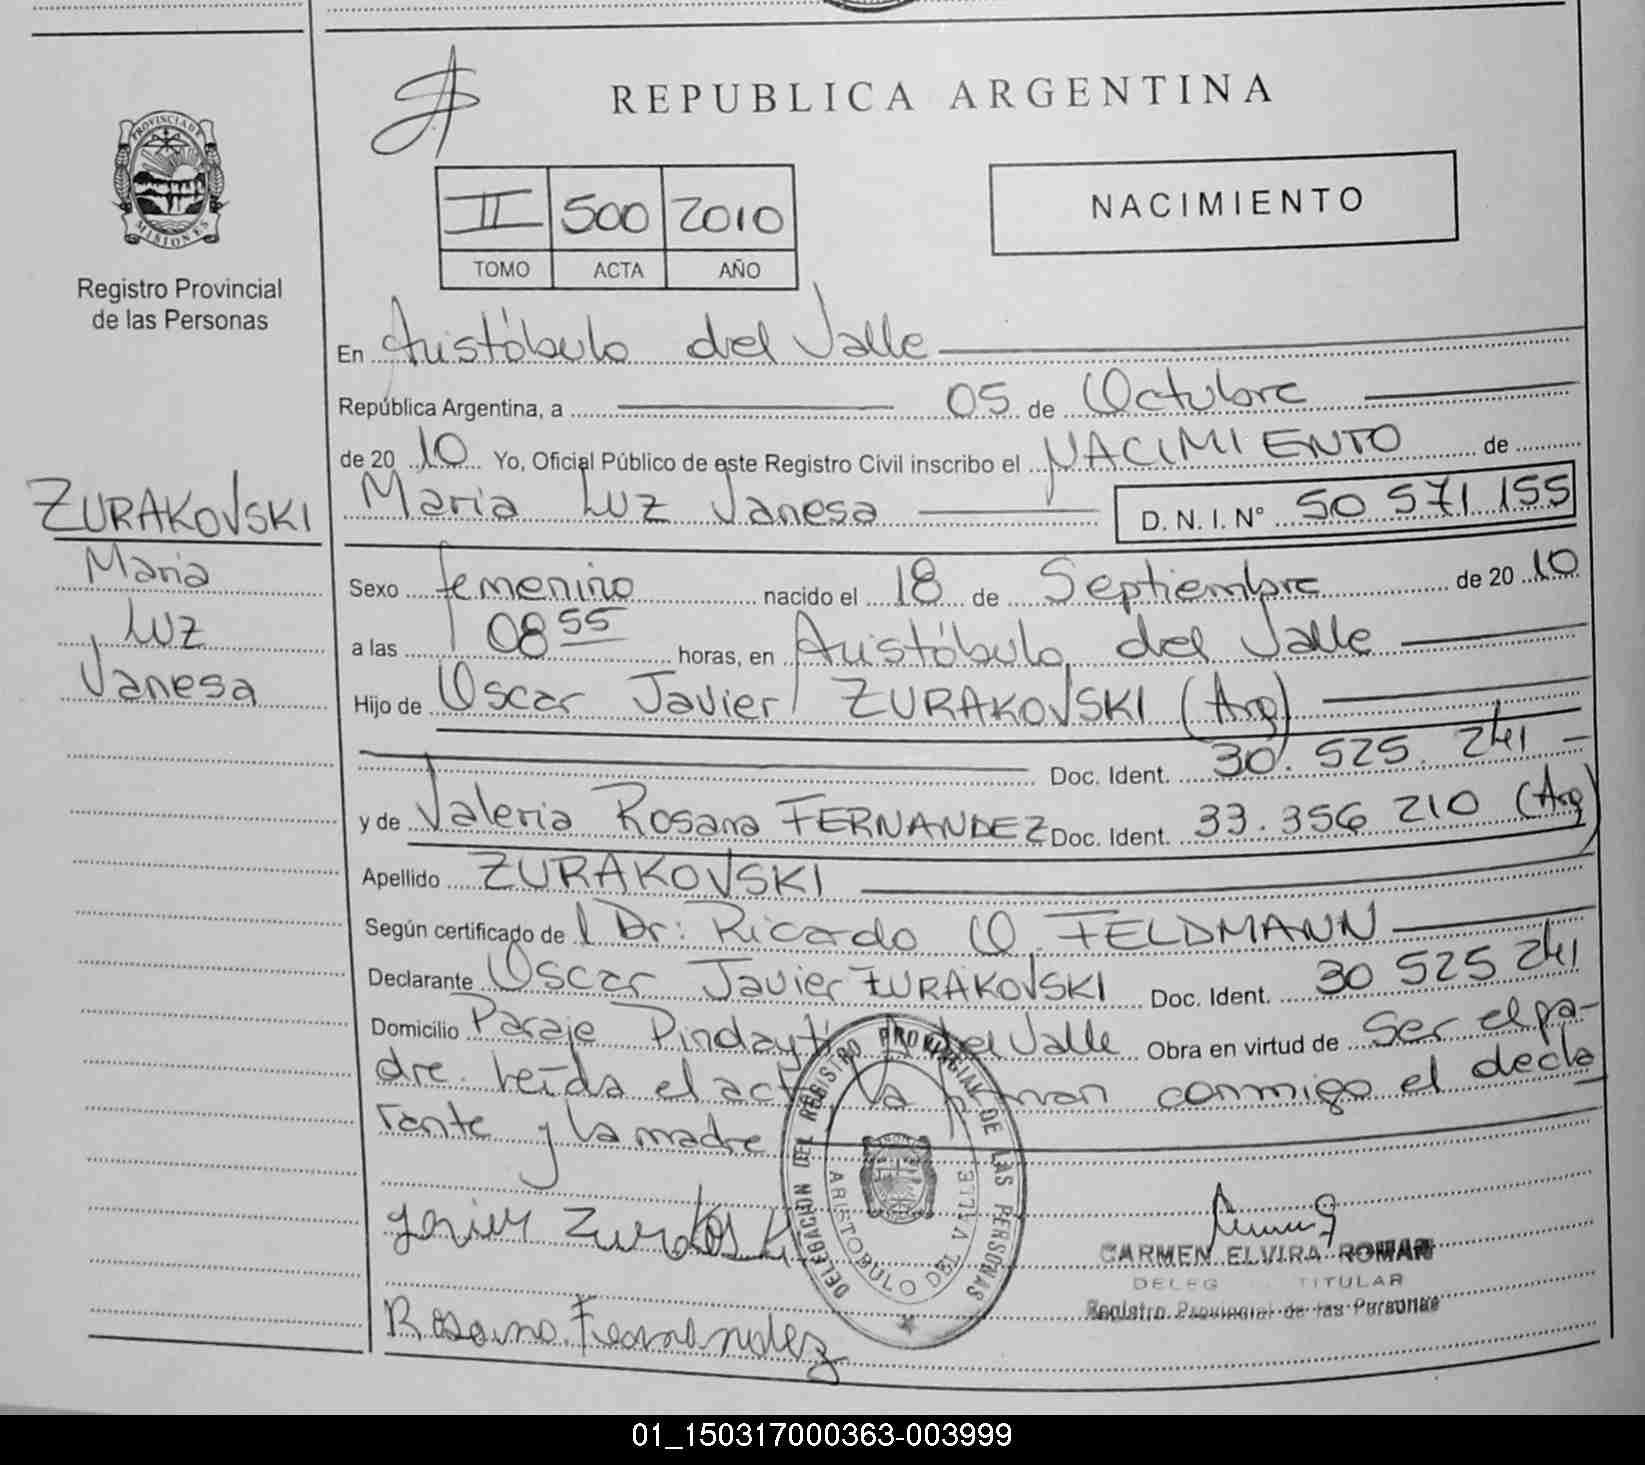 REPUBLICA ARGENTINA
PROVINCIA DE
MISIONES
Registro Provincial
de las Personas
II 500 2010
TOMO ACTA AÑO
NACIMIENTO
En Aristóbulo del Valle
República Argentina, a 05 de Octubre
de 20 10 Yo, Oficial Público de este Registro Civil inscribo el NACIMIENTO de
Maria Luz Vanesa D. N. I. N° 50 571 155
ZURAKOVSKI
Maria
Luz
Vanesa
Sexo femenino nacido el 18 de Septiembre de 20 10
a las 08 55 horas, en Aristóbulo del Valle
Hijo de Oscar Javier ZURAKOVSKI (Arg)
Doc. Ident. 30. 525. 241
y de Valeria Rosana FERNANDEZ Doc. Ident. 33. 356 210 (Arg)
Apellido ZURAKOVSKI
Según certificado de l Dr: Ricardo O. FELDMANN
Declarante Oscar Javier ZURAKOVSKI Doc. Ident. 30 525 241
Domicilio Paraje Pindaytí A. del Valle Obra en virtud de Ser el pa-
dre. Leída el acta la firman conmigo el decla
rante y la madre
DELEGACION DEL REGISTRO PROVINCIAL DE LAS PERSONAS
ARISTOBULO DEL VALLE
Javier Zurakoski
Rosana Fernandez
CARMEN ELVIRA ROMAN
DELEG TITULAR
Registro Provincial de las Personas
01_150317000363-003999